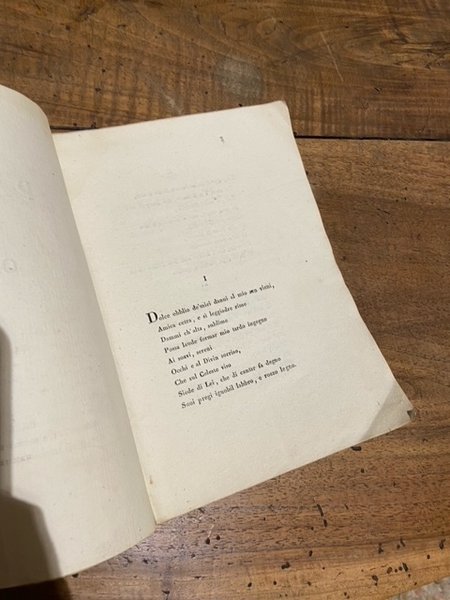 I
Dolce obblio de'miei danni al mio sen vieni,
Amica cetra, e sì leggiadre rime
Dammi ch'alta, sublime
Possa laude formar mio tardo ingegno
Ai rosei, sereni
Occhi e al Divin sorriso,
Che sul Celeste viso
Siede di Lei, che di cantar fa degno
Suoi pregi ignobil labbro, e rozzo legno.